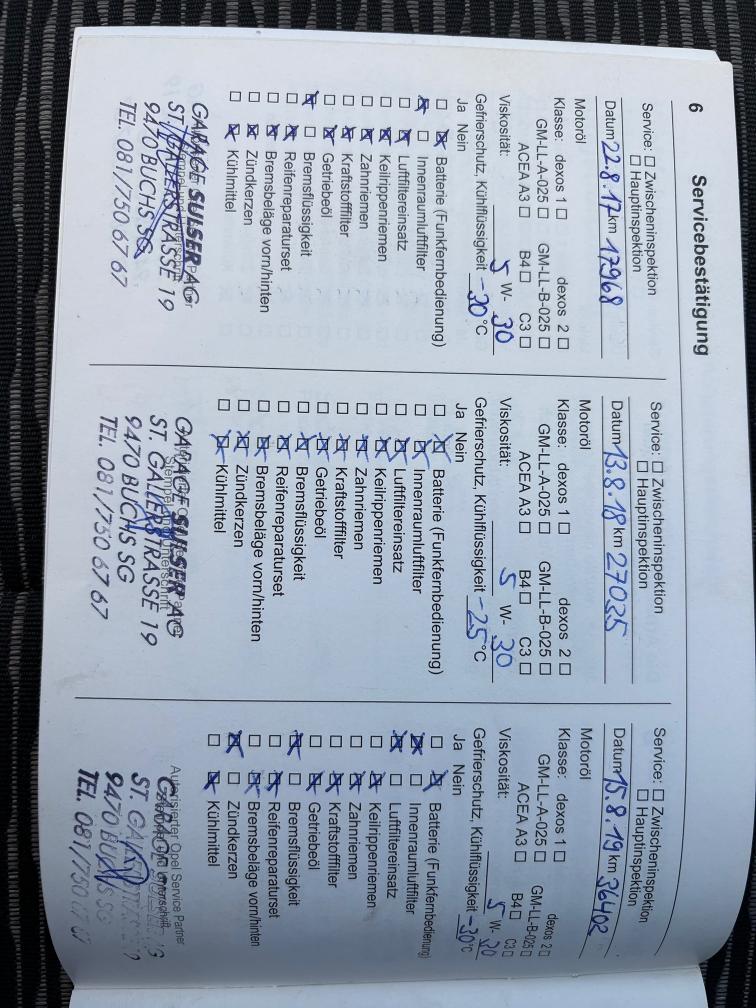 6 Servicebestätigung
Service: ☐ Zwischeninspektion
☐ Hauptinspektion
Datum 22.8.17 km 17968
Motoröl
Klasse: dexos 1 ☐ dexos 2 ☐
GM-LL-A-025 ☐ GM-LL-B-025 ☐
ACEA A3 ☐ B4 ☐ C3 ☐
Viskosität: 5 W- 30
Gefrierschutz, Kühlflüssigkeit -30 °C
Ja Nein
☐ ☒ Batterie (Funkfernbedienung)
☒ ☐ Innenraumluftfilter
☐ ☒ Luftfiltereinsatz
☐ ☒ Keilrippenriemen
☐ ☒ Zahnriemen
☐ ☒ Kraftstofffilter
☐ ☒ Getriebeöl
☒ ☐ Bremsflüssigkeit
☐ ☒ Reifenreparaturset
☐ ☒ Bremsbeläge vorn/hinten
☐ ☒ Zündkerzen
☐ ☒ Kühlmittel
GARAGE SULSER AG
ST. GALLERSTRASSE 19
9470 BUCHS SG
TEL. 081/750 67 67
Service: ☐ Zwischeninspektion
☐ Hauptinspektion
Datum 13.8.18 km 27025
Motoröl
Klasse: dexos 1 ☐ dexos 2 ☐
GM-LL-A-025 ☐ GM-LL-B-025 ☐
ACEA A3 ☐ B4 ☐ C3 ☐
Viskosität: 5 W- 30
Gefrierschutz, Kühlflüssigkeit -25 °C
Ja Nein
☐ ☒ Batterie (Funkfernbedienung)
☐ ☒ Innenraumluftfilter
☐ ☒ Luftfiltereinsatz
☐ ☒ Keilrippenriemen
☐ ☒ Zahnriemen
☐ ☒ Kraftstofffilter
☐ ☒ Getriebeöl
☐ ☒ Bremsflüssigkeit
☐ ☒ Reifenreparaturset
☐ ☒ Bremsbeläge vorn/hinten
☐ ☒ Zündkerzen
☐ ☒ Kühlmittel
GARAGE SULSER AG
ST. GALLERSTRASSE 19
9470 BUCHS SG
TEL. 081/750 67 67
Service: ☐ Zwischeninspektion
☐ Hauptinspektion
Datum 15.8.19 km 36402
Motoröl
Klasse: dexos 1 ☐ dexos 2 ☐
GM-LL-A-025 ☐ GM-LL-B-025 ☐
ACEA A3 ☐ B4 ☐ C3 ☐
Viskosität: 5 W- 30
Gefrierschutz, Kühlflüssigkeit -30 °C
Ja Nein
☐ ☒ Batterie (Funkfernbedienung)
☒ ☐ Innenraumluftfilter
☒ ☐ Luftfiltereinsatz
☐ ☒ Keilrippenriemen
☐ ☒ Zahnriemen
☐ ☒ Kraftstofffilter
☐ ☒ Getriebeöl
☒ ☐ Bremsflüssigkeit
☐ ☒ Reifenreparaturset
☐ ☒ Bremsbeläge vorn/hinten
☒ ☐ Zündkerzen
☐ ☒ Kühlmittel
Autorisierter Opel Service Partner
ST.
9470 BUCHS SG
TEL. 081/750 67 67